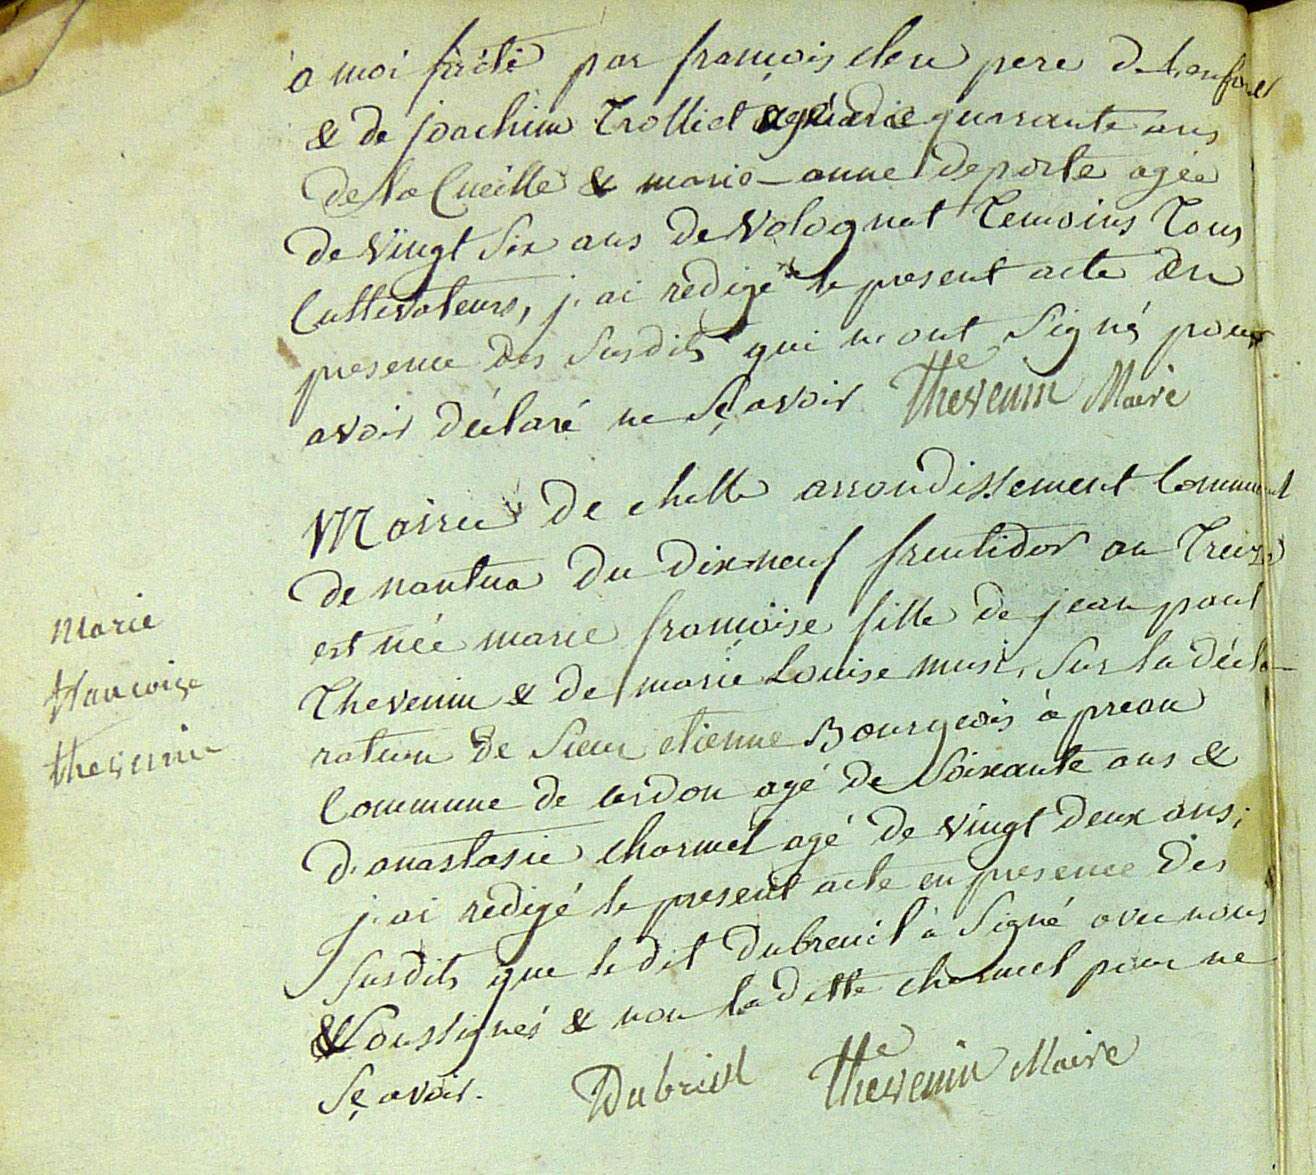 a moi faitte par françois cleu pere de l'enfant
& de joachim Trolliet agé de quarrante ans
de la Cueille & marie-anne deporte agée
de vingt six ans de Volognat Temoins Tous
Cultivateurs, j'ai redigé le present acte en
presence des susdits qui n'ont signés pour
avoir déclaré ne sçavoir Thevenin Maire
Mairie de chelle arrondissement Communal
de nantua du dix-neuf fructidor an Treize
est née marie françoise fille de jean paul
Thevenin & de marie Louise musi, sur la décla-
ration de sieur etienne Bourgeois à preau
Commune de cerdon agé de soixante ans &
d'anastasie charmet agé de vingt deux ans;
j'ai redigé le present acte en presence des
susdits que le dit Dubreuil à signé avec nous
& soussignés & non la ditte charmet pour ne
sçavoir. Dubreul Thevenin Maire
marie
françoise
thevenin